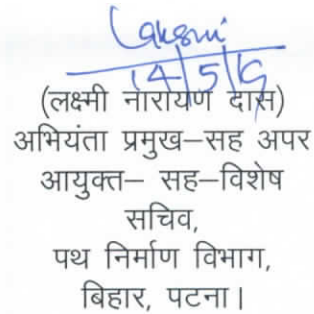 Laksmi
14/5/15
(लक्ष्मी नारायण दास)
अभियंता प्रमुख–सह अपर
आयुक्त– सह–विशेष
सचिव,
पथ निर्माण विभाग,
बिहार, पटना।